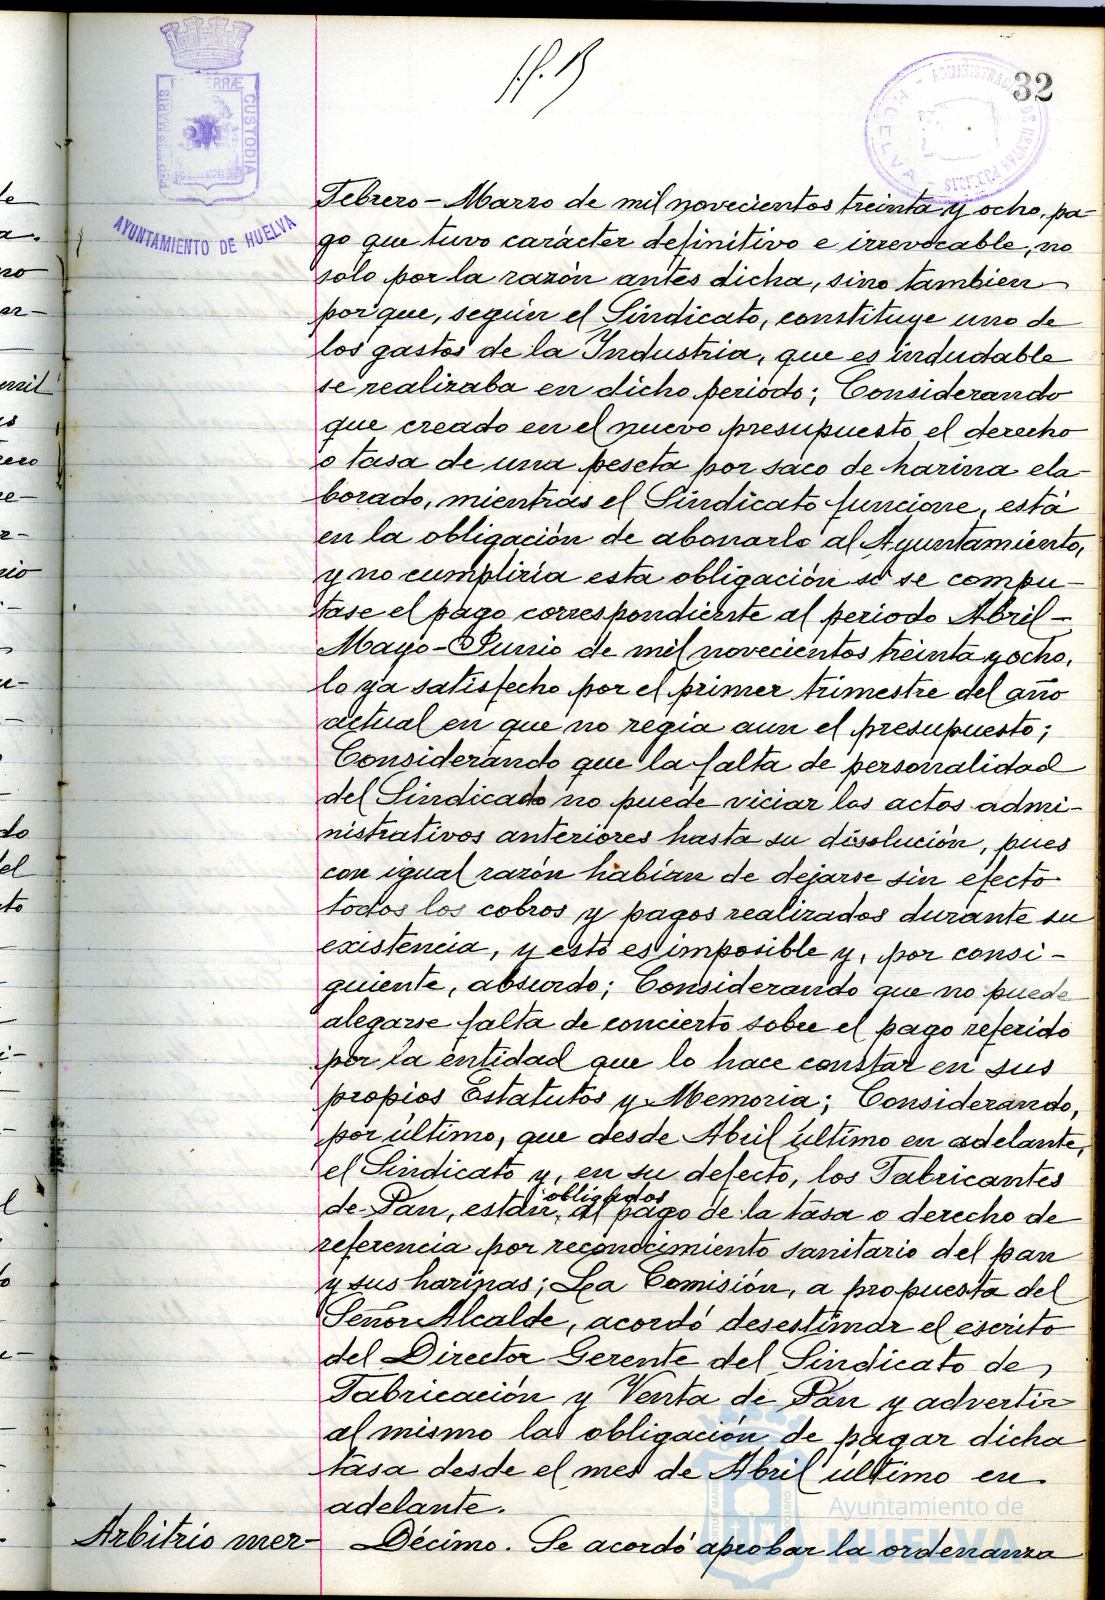 32
PORTUS MARIS ET TERRÆ CUSTODIA
AYUNTAMIENTO DE HUELVA
HUELVA
Febrero - Marzo de mil novecientos treinta y ocho, pa-
go que tuvo carácter definitivo e irrevocable, no
solo por la razón antes dicha, sino tambien
porque, según el Sindicato, constituye uno de
los gastos de la Industria, que es indudable
se realizaba en dicho periodo; Considerando
que creado en el nuevo presupuesto el derecho
o tasa de una peseta por saco de harina ela-
borado, mientras el Sindicato funcione, está
en la obligación de abonarlo al Ayuntamiento,
y no cumpliría esta obligación si se compu-
tase el pago correspondiente al periodo Abril -
Mayo - Junio de mil novecientos treinta y ocho,
lo ya satisfecho por el primer trimestre del año
actual en que no regía aun el presupuesto;
Considerando que la falta de personalidad
del Sindicado no puede viciar los actos admi-
nistrativos anteriores hasta su disolución, pues
con igual razón habían de dejarse sin efecto
todos los cobros y pagos realizados durante su
existencia, y esto es imposible y, por consi-
guiente, absurdo; Considerando que no puede
alegarse falta de concierto sobre el pago referido
por la entidad que lo hace constar en sus
propios Estatutos y Memoria; Considerando,
por último, que desde Abril último en adelante,
el Sindicato y, en su defecto, los Fabricantes
de Pan, están obligados al pago de la tasa o derecho de
referencia por reconocimiento sanitario del pan
y sus harinas; La Comisión, a propuesta del
Señor Alcalde, acordó desestimar el escrito
del Director Gerente del Sindicato de
Fabricación y Venta de Pan y advertir
al mismo la obligación de pagar dicha
tasa desde el mes de Abril último en
adelante.
Arbitrio mer- Décimo. Se acordó aprobar la ordenanza
Ayuntamiento de
HUELVA